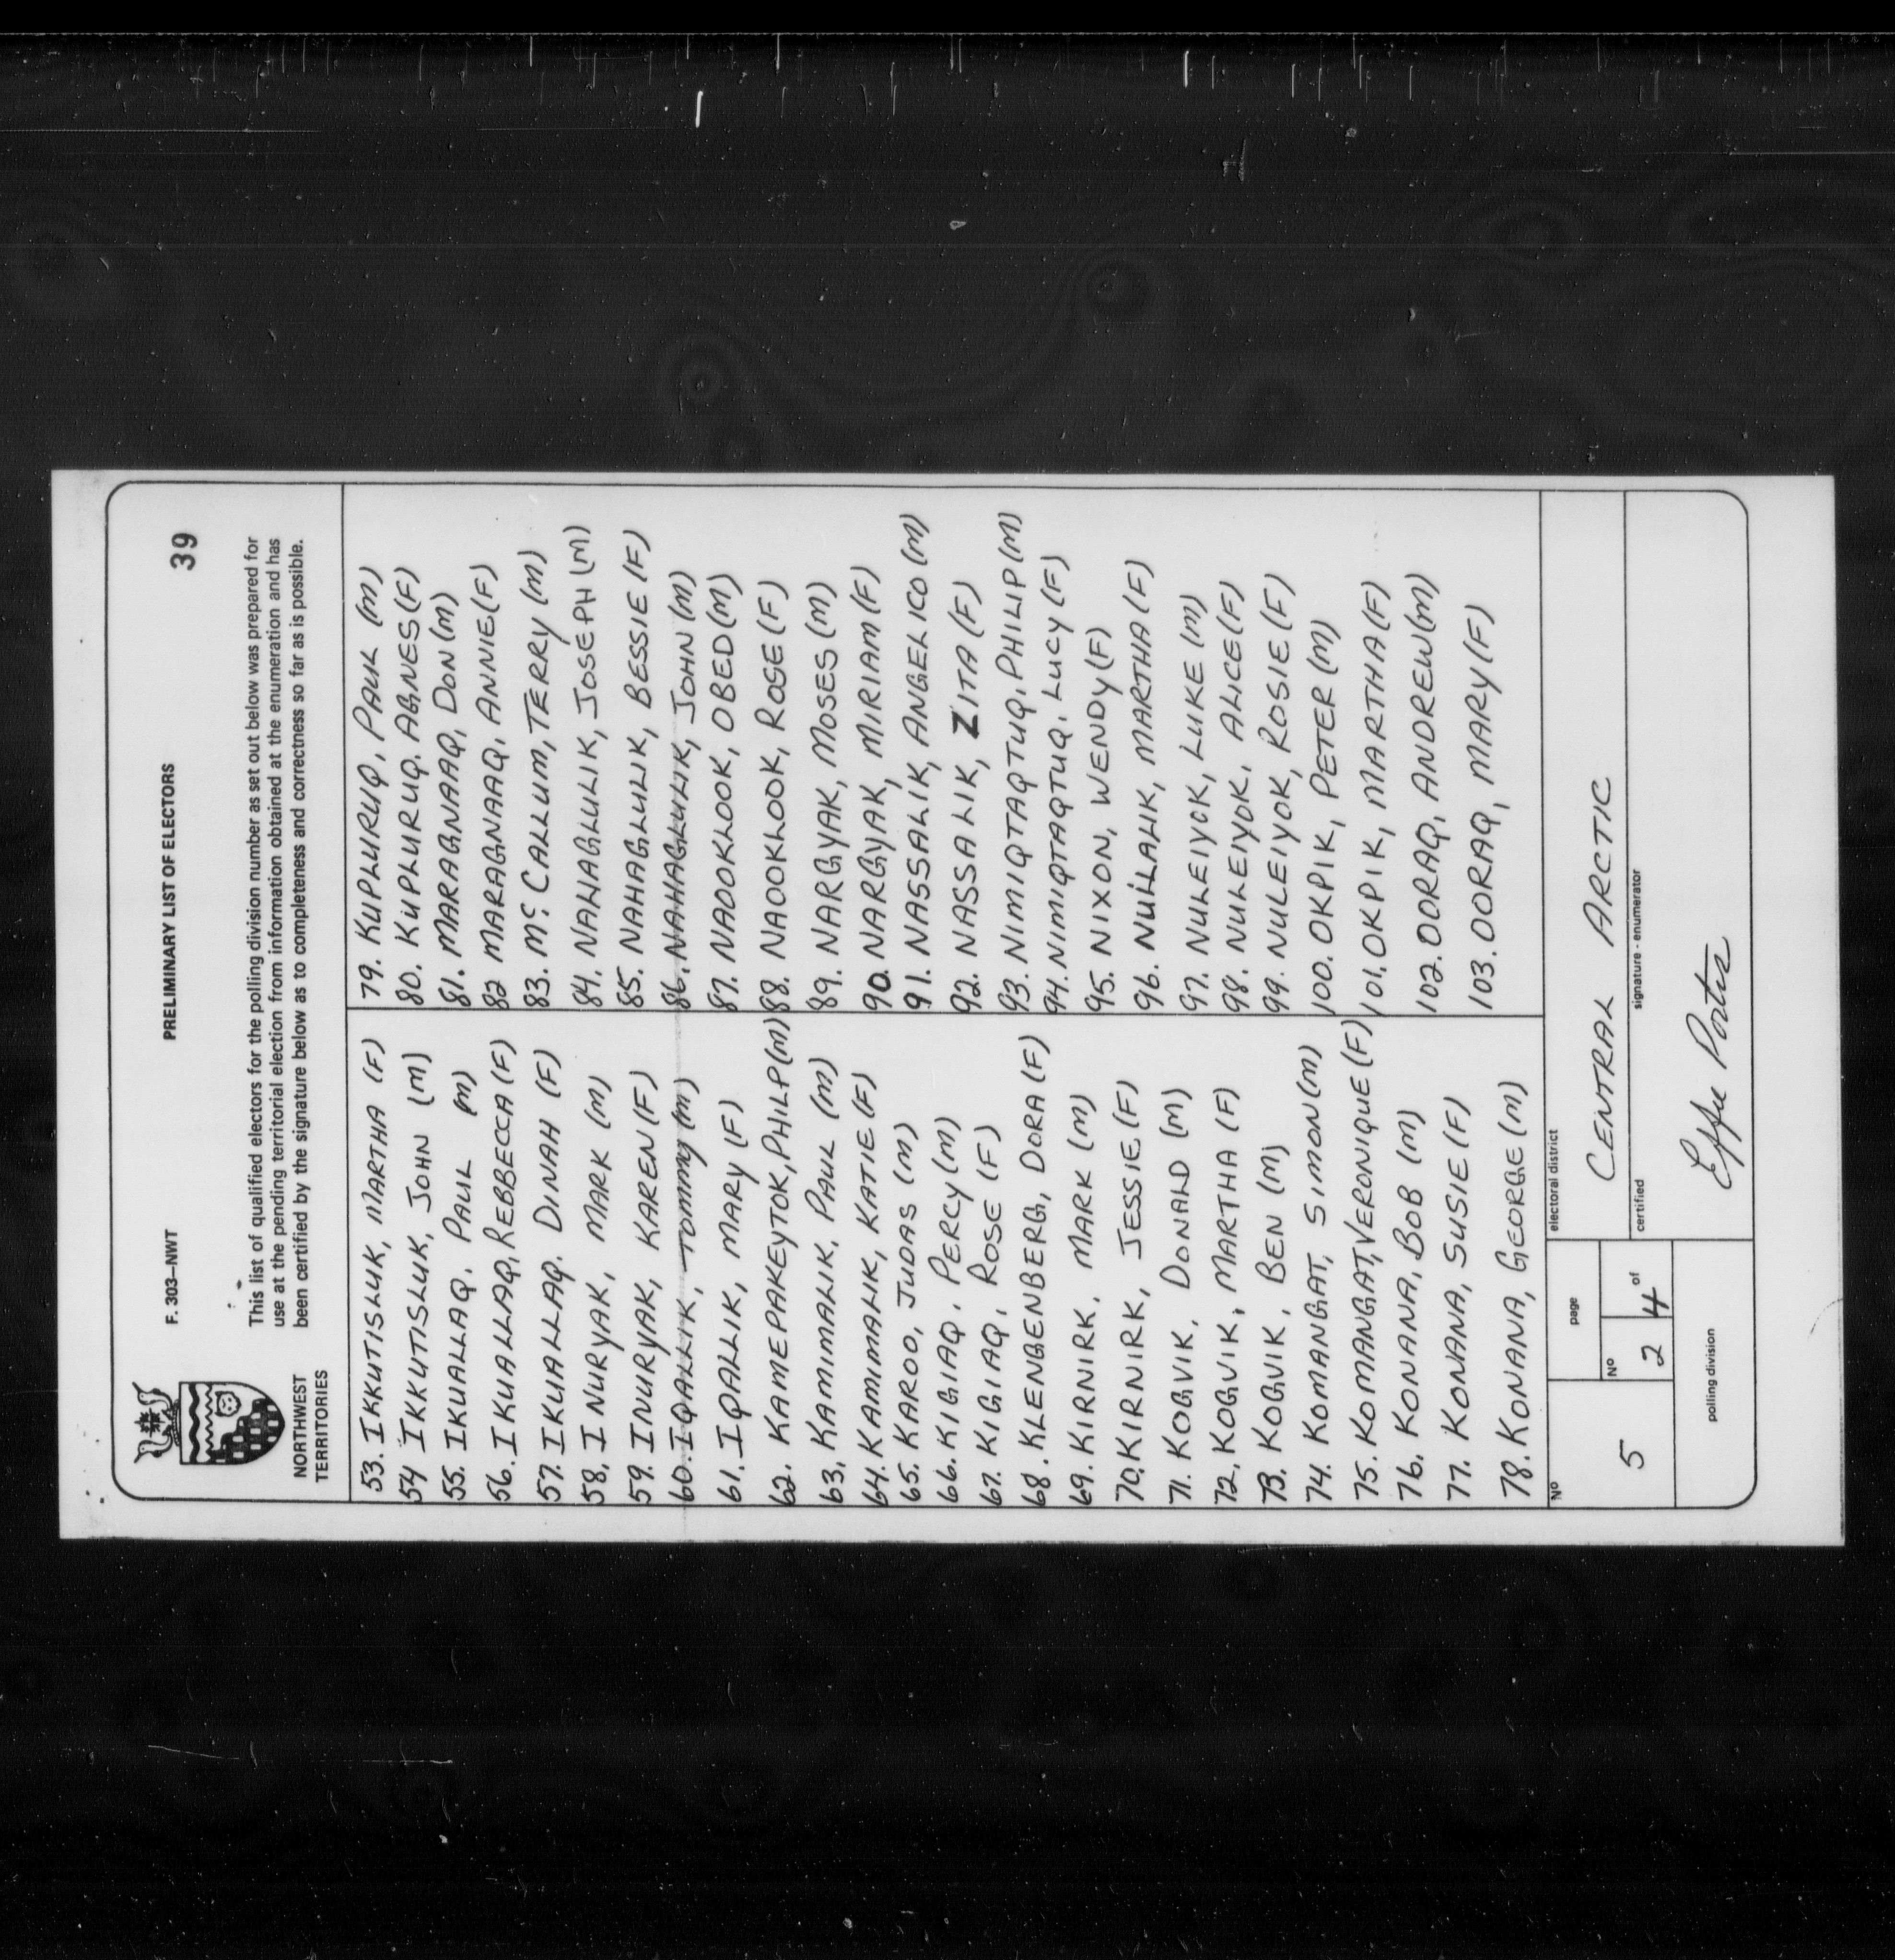 F. 303—NWT
PRELIMINARY LIST OF ELECTORS
39
NORTHWEST
TERRITORIES
This list of qualified electors for the polling division number as set out below was prepared for
use at the pending territorial election from information obtained at the enumeration and has
been certified by the signature below as to completeness and correctness so far as is possible.
53. IKKUTISLUK, MARTHA (F)
54 IKKUTISLUK, JOHN (M)
55. IKUALLAQ, PAUL (M)
56. IKUALLAQ, REBBECCA (F)
57. IKUALLAQ, DINAH (F)
58, INURYAK, MARK (M)
59. INURYAK, KAREN (F)
60. IQALLIK, TOMMY (M)
61. IQALLIK, MARY (F)
62. KAMEPAKEYTOK, PHILP (M)
63, KAMIMALIK, PAUL (M)
64. KAMIMALIK, KATIE (F)
65. KAROO, JUDAS (M)
66. KIGIAQ, PERCY (M)
67. KIGIAQ, ROSE (F)
68. KLENGENBERG, DORA (F)
69. KIRNIRK, MARK (M)
70. KIRNIRK, JESSIE (F)
71. KOGVIK, DONALD (M)
72, KOGVIK, MARTHA (F)
73. KOGVIK, BEN (M)
74. KOMANGAT, SIMON (M)
75. KOMANGAT, VERONIQUE (F)
76. KONANA, BOB (M)
77. KONANA, SUSIE (F)
78. KONANA, GEORGE (M)
79. KUPLURUQ, PAUL (M)
80. KUPLURUQ, AGNES (F)
81. MARAGNAAQ, DON (M)
82 MARAGNAAQ, ANNIE (F)
83. Mc. CALLUM, TERRY (M)
84. NALHAGLULIK, JOSEPH (M)
85. NAHAGLULIK, BESSIE (F)
86. NAHAGLULIK, JOHN (M)
87. NAOOKLOOK, OBED (M)
88. NAOOKLOOK, ROSE (F)
89. NARGYAK, MOSES (M)
90. NARGYAK, MIRIAM (F)
91. NASSALIK, ANGELICO (M)
92. NASSALIK, ZITA (F)
93. NIMIQTAQTUQ, PHILIP (M)
94. NIMIQTAQTUQ, LUCY (F)
95. NIXON, WENDY (F)
96. NUILLALIK, MARTHA (F)
97. NULEIYOK, LUKE (M)
98. NULEIYOK, ALICE (F)
99. NULEIYOK, ROSIE (F)
100. OKPIK, PETER (M)
101. OKPIK, MARTHA (F)
102. OORAQ, ANDREW (M)
103. OORAQ, MARY (F)
No
5
page
No
2
4 of
polling division
electoral district
CENTRAL ARCTIC
certified
signature - enumerator
Effie Porter